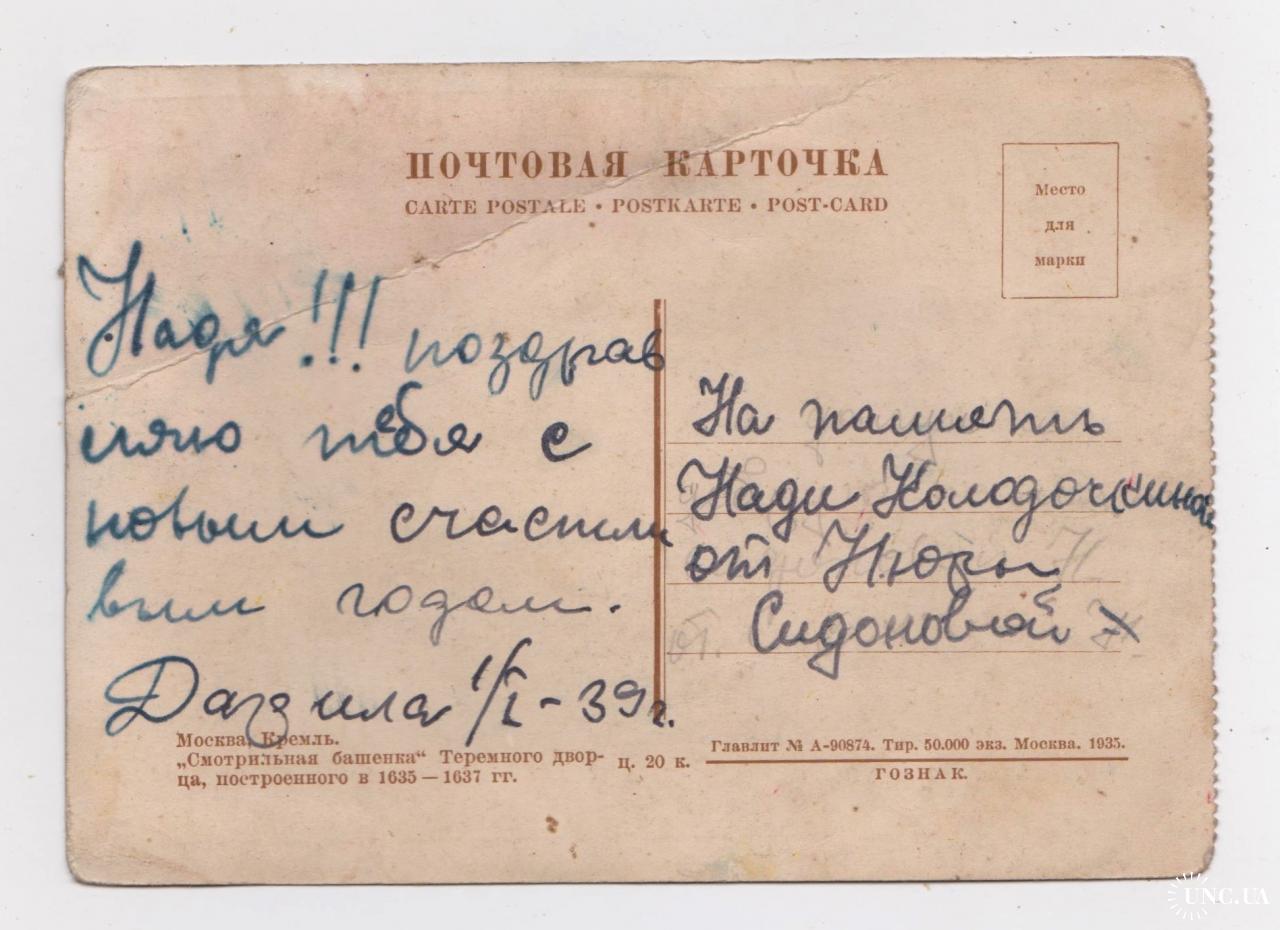 ПОЧТОВАЯ КАРТОЧКА
CARTE POSTALE • POSTKARTE • POST-CARD
Место
для
марки
Надя!!! поздрав
ляю тебя с
новым счастли
вым годом.
1/I-39г.
На память
Нади Колодочкиной
от Нюры
Сидоновой
от.
Москва. Кремль.
„Смотрильная башенка“ Теремного двор-
ца, построенного в 1635 — 1637 гг.
ц. 20 к.
Главлит № А-90874. Тир. 50.000 экз. Москва. 1935.
ГОЗНАК.
UNC.UA